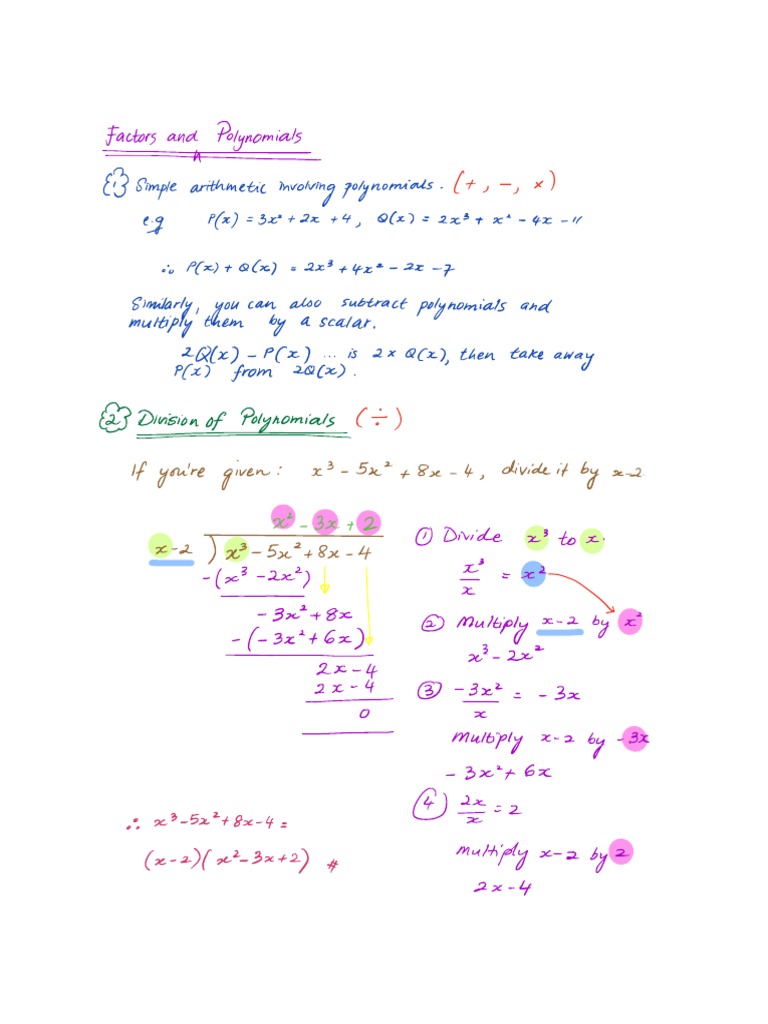 Factors and Polynomials
① Simple arithmetic involving polynomials. (+, −, ×)
e.g P(x) = 3x² + 2x + 4, Q(x) = 2x³ + x² − 4x − 11
∴ P(x) + Q(x) = 2x³ + 4x² − 2x − 7
Similarly, you can also subtract polynomials and
multiply them by a scalar.
2Q(x) − P(x) ... is 2 x Q(x), then take away
P(x) from 2Q(x).
② Division of Polynomials (÷)
If you're given: x³ − 5x² + 8x − 4, divide it by x−2
x² − 3x + 2
x−2 ) x³ − 5x² + 8x − 4
−(x³ − 2x²)
− 3x² + 8x
−(−3x² + 6x)
2x − 4
2x − 4
0
∴ x³ − 5x² + 8x − 4 =
(x−2)(x² − 3x + 2) #
① Divide x³ to x.
x³/x = x²
② Multiply x−2 by x²
x³ − 2x²
③ −3x²/x = −3x
Multiply x−2 by −3x
−3x² + 6x
④ 2x/x = 2
Multiply x−2 by 2
2x−4